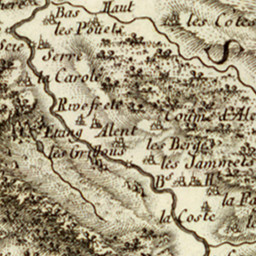 Haut
Bas
les Pouels
les Cotes
S
Serre
la Carole
Rivefrete
Coume d'Ale
Etang Alent
les Berges
les Grillous
les Jammets
Bs
H
la Coste
la Fa